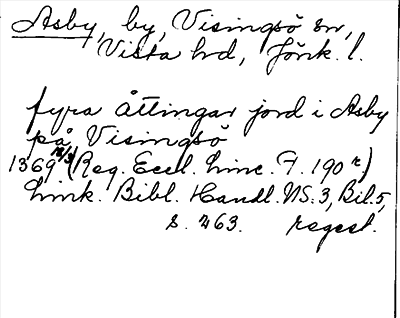 Asby, by, Visingsö sn,
Vista hd, Jönk. l.
fyra åttingar jord i Asby
på Visingsö
1369 (Reg. Eccl. Linc. F. 190 r)
Link. Bibl. Handl. NS: 3, Bil. 5,
s. 263. regest.